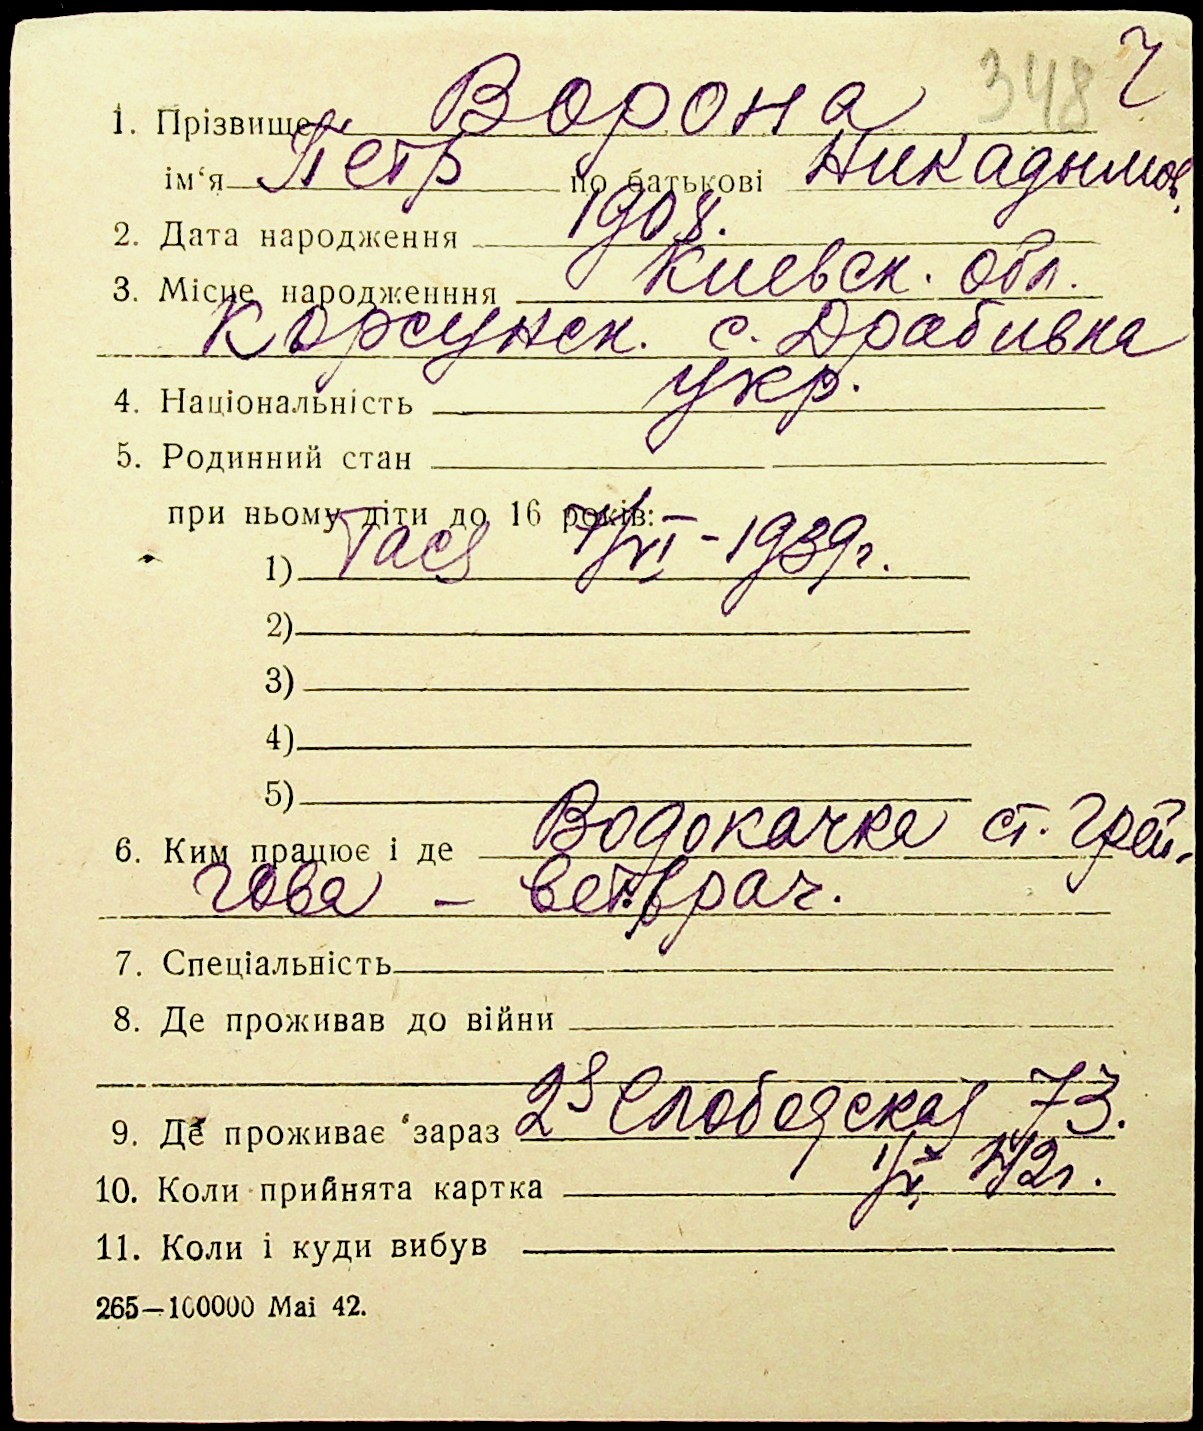 348 Ч
1. Прізвище Ворона
ім‘я Петр по батькові Никадимов.
2. Дата народження 1908.
3. Місце народженння Киевск. обл.
Корсунск. с. Драбивка
4. Національність укр.
5. Родинний стан
при ньому діти до 16 років:
1) Тася 7/VI - 1939г.
2)
3)
4)
5)
6. Ким працює і де Водокачка ст. Грей-
гова - ветврач.
7. Спеціальність
8. Де проживав до війни
9. Де проживає зараз 2я Слободская 73.
10. Коли прийнята картка 42г.
11. Коли і куди вибув
265—100000 Маі 42.